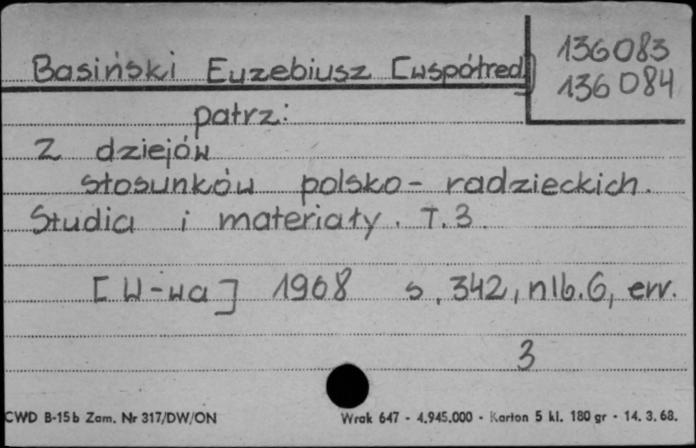 136083
Basiński Euzebiusz [współred]
136084
patrz:
Z dziejów
stosunków polsko-radzieckich.
Studia i materiały. T.3.
[W-wa] 1968 s. 342, nlb. 6, err.
3
CWD B-15b Zam. Nr 317/DW/ON Wrak 647 - 4.945.000 - Karton 5 kl. 180 gr - 14. 3. 68.